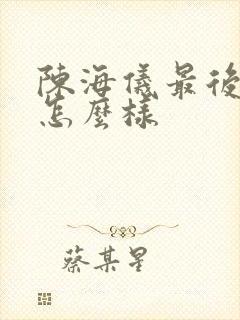 陳海儀最後
怎麼樣
蔡某星